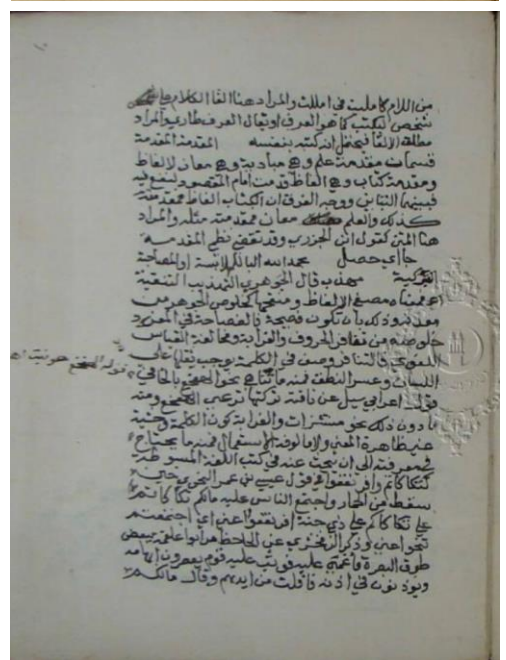 من اللام كامليت في امللت والمراد هنا القا الكلام على
شخص ليكتب كما هو العرف اويقال العرف طاري والمراد
مطلق الالقا فيحتمل انه كتبه بنفسه المقدمة المقدمة
قسمان مقدمة علم وهي مبادية وهي معان لالفاظ
ومقدمة كتاب وهي الفاظ قدمت امام المقصود لينتفع فيه
فبينهما التباين ووجه الفرق ان الكتاب الفاظ فمقدمته
كذلك والعلم معان فمقدمته مثله والمراد
هنا المتن كقول ابن الجزري وقد تقضى نظمي المقدمه
جا اي حصل بحمد الله البا للملابسة او المصاحبة
التبركية مهذب قال الجوهري التهذيب التنقية
اي منقاة مصفى الالفاظ ومنقحها كخلوص الجوهر من
معدنه وذلك بان تكون فصيحة فالفصاحة في المفرد
خلوصه من تنافر الحروف والغرابة ومخالفة القياس
اللغوي فالتنافر وصف في الكلمة يوجب ثقلها على
اللسان وعسر النطق فمنه ما تناهى نحو الهعخع بالخا في
قول اعرابي سيل عن ناقته تركتها ترعى الهعخع ومنه
ما دون ذلك نحو مستشزرات والغرابة كون الكلمة وحشية
غير ظاهرة المعنى ولا مالوفة الاستعمال فمنه ما يحتاج
في معرفته الى ان يبحث عنه في كتب اللغة المبسوطة
كتكاكاتم وافرنقعوا في قول عيسى بن عمر النحوي حين
سقط من الحمار واجتمع الناس عليه مالكم تكاكاتم
علي تكاكاكم على ذي جنة افرنقعوا عني اي اجتمعتم
تنحوا عني وذكر الزمخشري عن الجاحظ مر ابو علقمة ببعض
طرق البصرة فاغمي عليه فوثب عليه قوم يعصرون ابهامه
ويوذنون في اذنه فافلت من ايديهم وقال مالكم
قوله الهعخع هو نبت اه